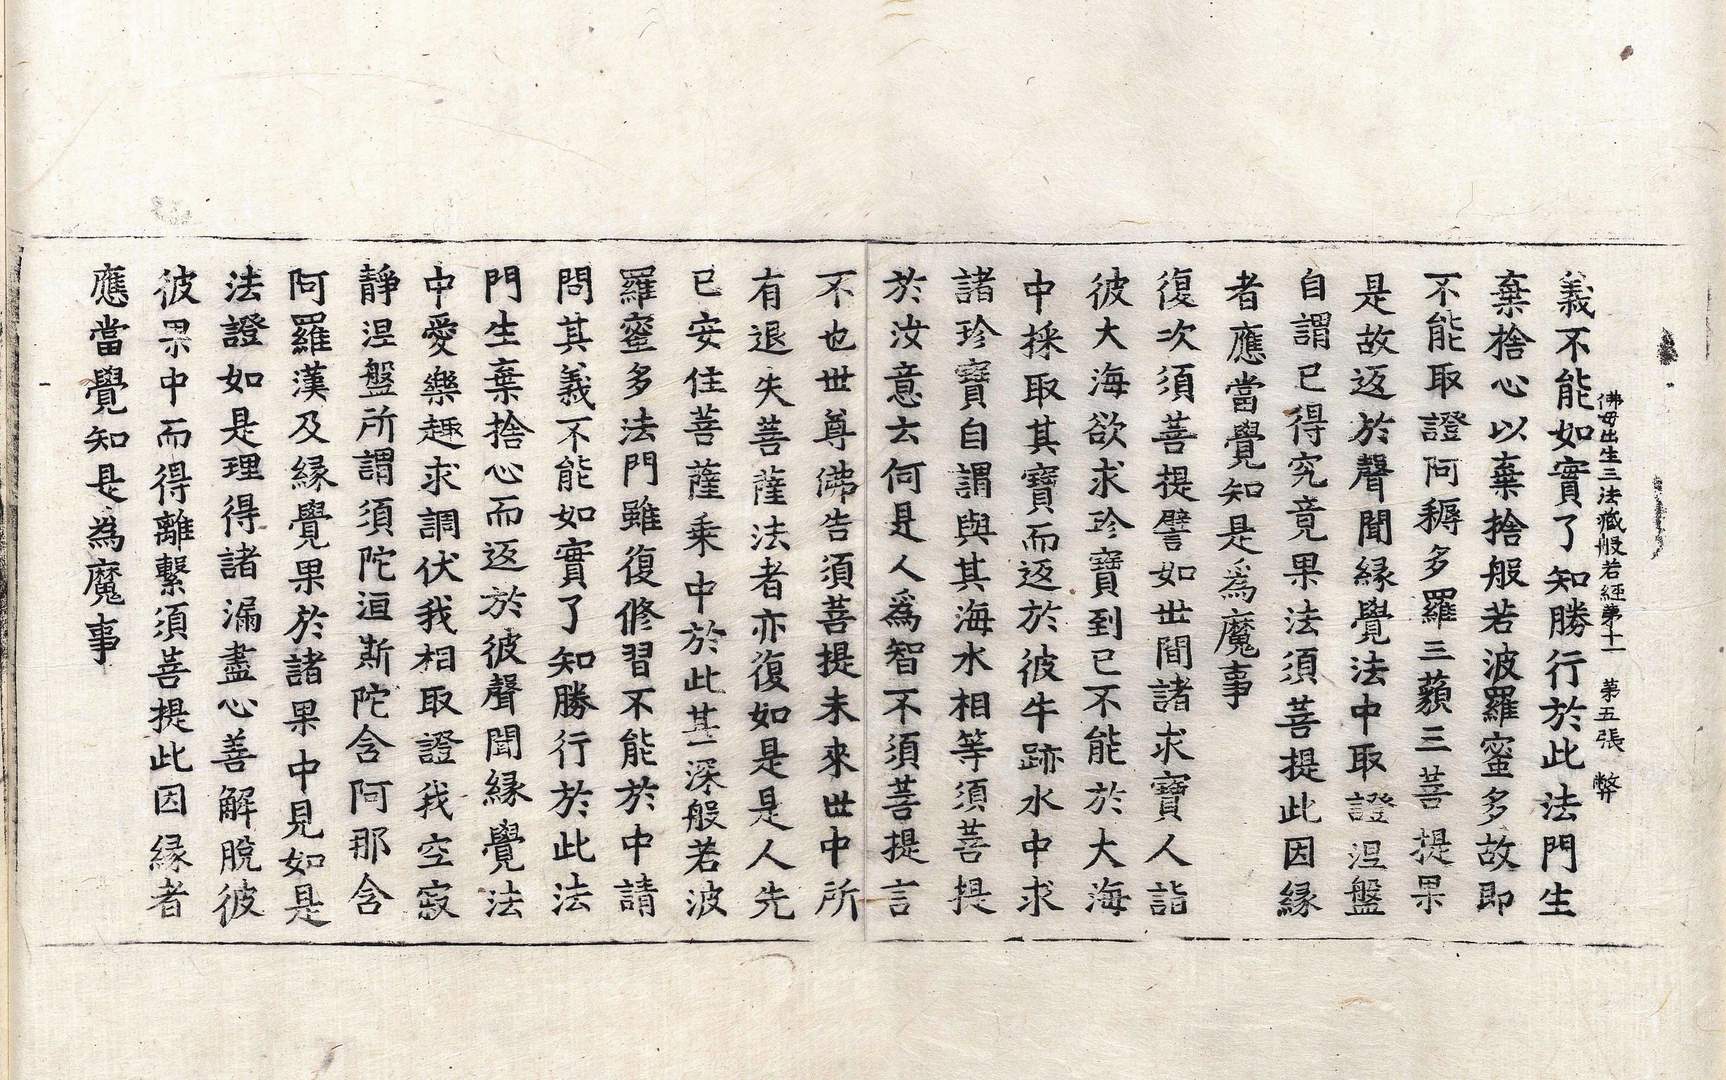 佛母出生三法藏般若經第十一 第五張 弊
義不能如實了知勝行於此法門生
棄捨心以棄捨般若波羅蜜多故即
不能取證阿耨多羅三藐三菩提果
是故返於聲聞緣覺法中取證涅盤
自謂已得究竟果法須菩提此因緣
者應當覺知是爲魔事
復次須菩提譬如世間諸求寶人詣
彼大海欲求珍寶到已不能於大海
中採取其寶而返於彼牛跡水中求
諸珍寶自謂與其海水相等須菩提
於汝意云何是人爲智不須菩提言
不也世尊佛告須菩提未來世中所
有退失菩薩法者亦復如是是人先
已安住菩薩乘中於此甚深般若波
羅蜜多法門雖復修習不能於中請
問其義不能如實了知勝行於此法
門生棄捨心而返於彼聲聞緣覺法
中愛樂趣求調伏我相取證我空寂
靜涅盤所謂須陀洹斯陀含阿那含
阿羅漢及緣覺果於諸果中見如是
法證如是理得諸漏盡心善解脫彼
彼果中而得離繫須菩提此因緣者
應當覺知是為魔事